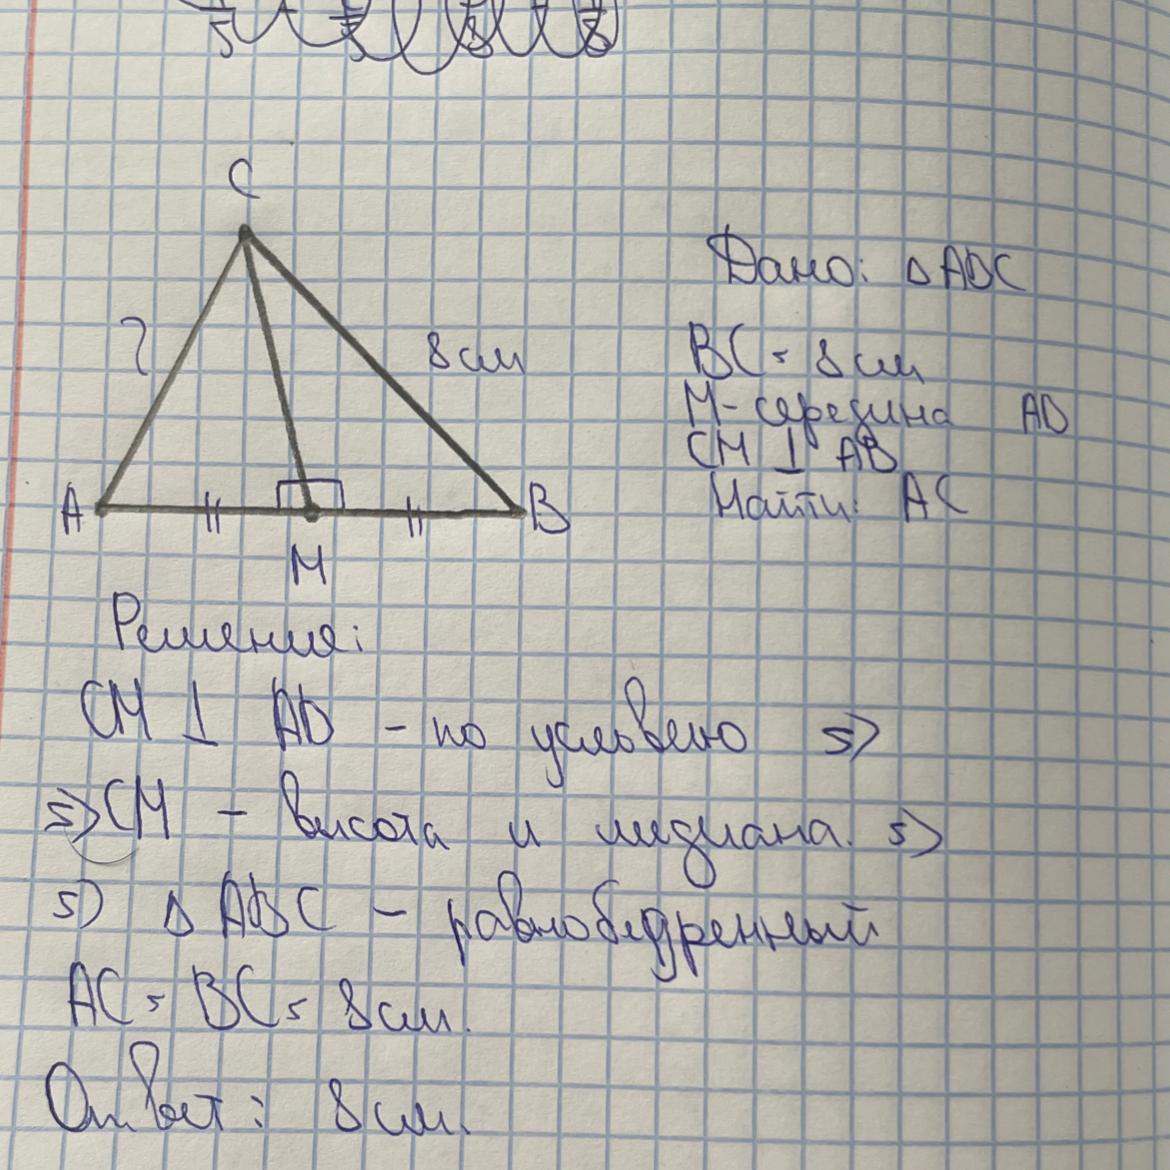 C
Дано: △ ABC
? 8 см
BC = 8 см
M - середина AB
CM ⊥ AB
A B
Найти: AC
M
Решения:
CM ⊥ AB - по условию =>
=> CM - высота и медиана. =>
=> △ ABC - равнобедренный
AC = BC = 8 см.
Ответ: 8 см.